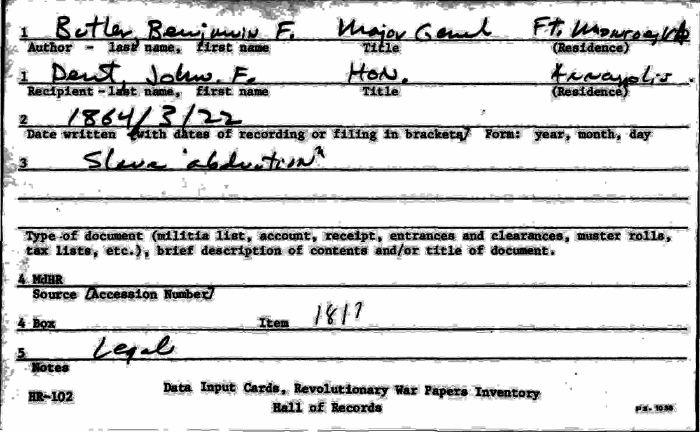 1 Butler, Benjamin F. Major Genl Ft. Monroe, Va
Author - last name, first name Title (Residence)
1 Dent, John F. Hon. Annapolis
Recipient - last name, first name Title (Residence)
2 1864/3/22
Date written [with dates of recording or filing in brackets] Form: year, month, day
3 Slave "abduction"
Type of document (militia list, account, receipt, entrances and clearances, muster rolls,
tax lists, etc.), brief description of contents and/or title of document.
4 MdHR
Source [Accession Number]
4 Box Item 181?
5 Legal
Notes
HR-102 Data Input Cards, Revolutionary War Papers Inventory
Hall of Records